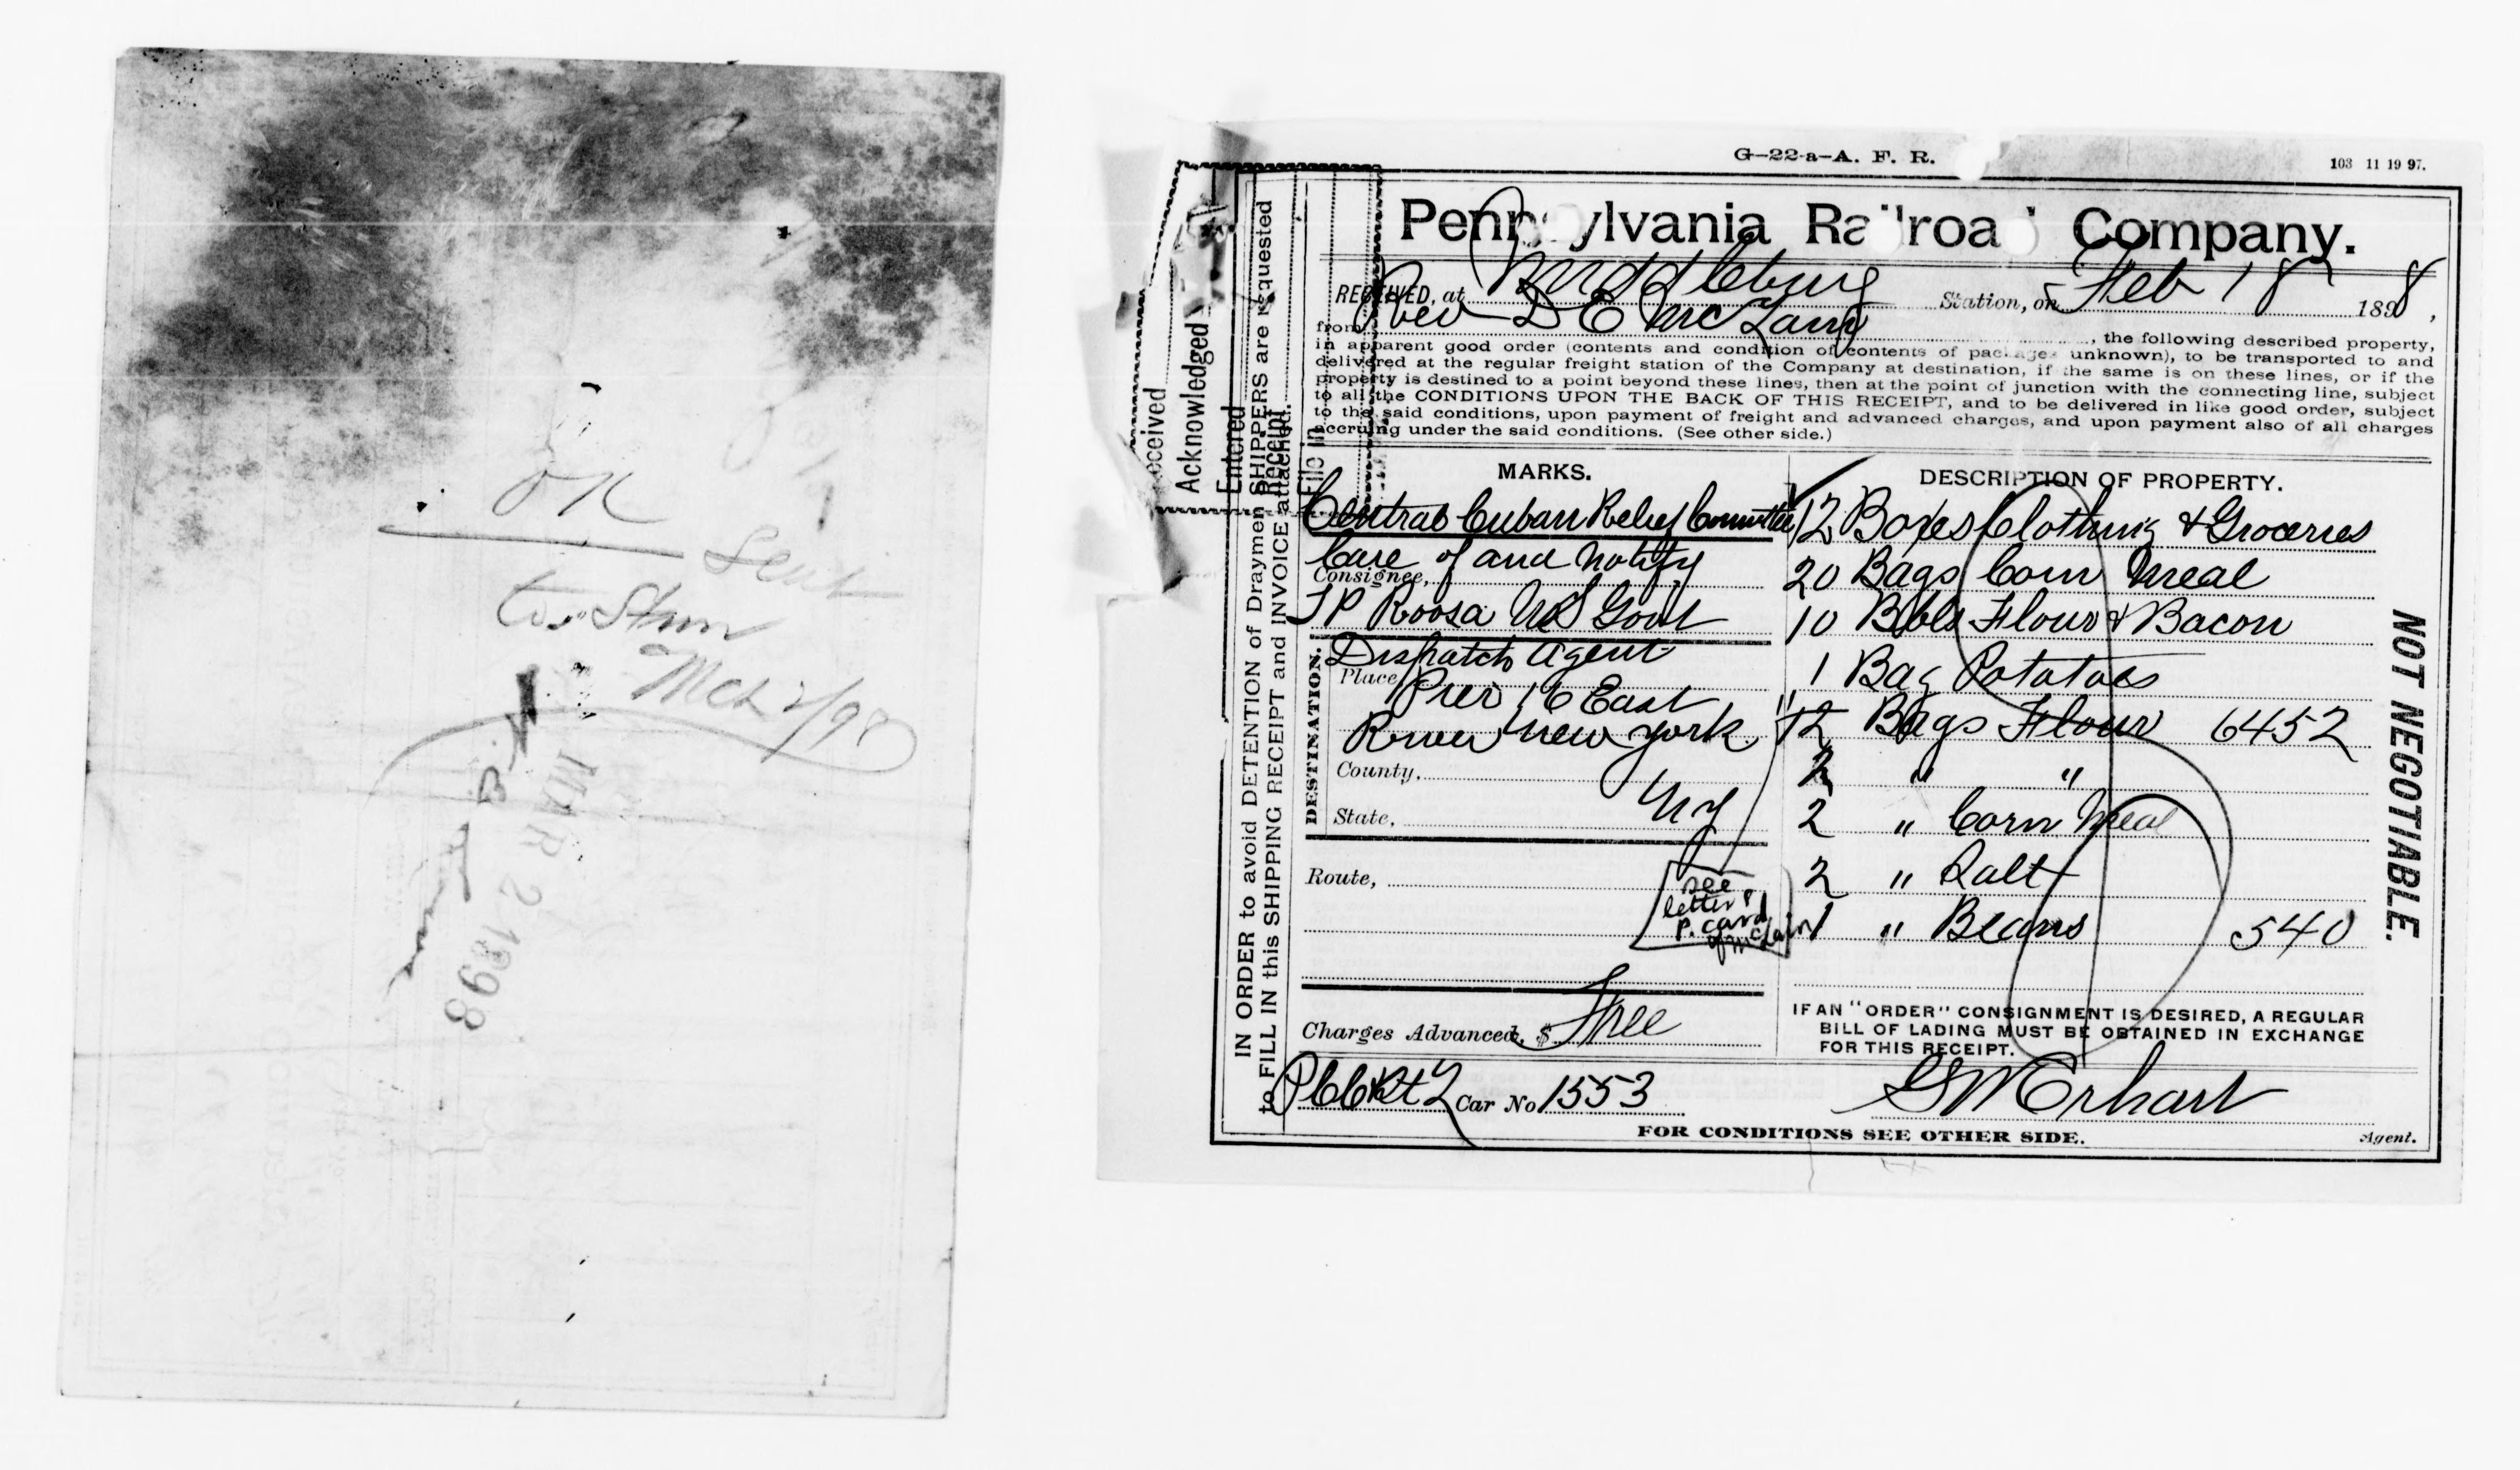 OK
Sent
to Stmr
Mch 2/98
MAR 2 1898
G-22-a-A. F. R.
103 11 19 97.
Pennsylvania Railroad Company.
RECEIVED, at Middleburg Station, on Feb 18 1898,
from Rev D E McLain, the following described property,
in apparent good order (contents and condition of contents of packages unknown), to be transported to and
delivered at the regular freight station of the Company at destination, if the same is on these lines, or if the
property is destined to a point beyond these lines, then at the point of junction with the connecting line, subject
to all the CONDITIONS UPON THE BACK OF THIS RECEIPT, and to be delivered in like good order, subject
to the said conditions, upon payment of freight and advanced charges, and upon payment also of all charges
accruing under the said conditions. (See other side.)
Received
Acknowledged
Entered
Receipt
File in
IN ORDER to avoid DETENTION of Draymen SHIPPERS are requested
to FILL IN this SHIPPING RECEIPT and INVOICE attached.
MARKS.
Central Cuban Relief Committee
Care of and Notify
Consignee,
T P Roosa US Govt
DESTINATION.
Dispatch Agent
Place, Pier 16 East
River New York
County,
State, NY
Route,
see
letter &
P. card
of McLain
Charges Advanced, $ Free
Car No 1553
DESCRIPTION OF PROPERTY.
12 Boxes Clothing & Groceries
20 Bags Corn Meal
10 Bbls Flour & Bacon
1 Bag Potatoes
12 Bags Flour 6452
2 " "
2 " Corn Meal
2 " Salt
1 " Beans 540
NOT NEGOTIABLE.
IF AN "ORDER" CONSIGNMENT IS DESIRED, A REGULAR
BILL OF LADING MUST BE OBTAINED IN EXCHANGE
FOR THIS RECEIPT.
G W Erhart
Agent.
FOR CONDITIONS SEE OTHER SIDE.